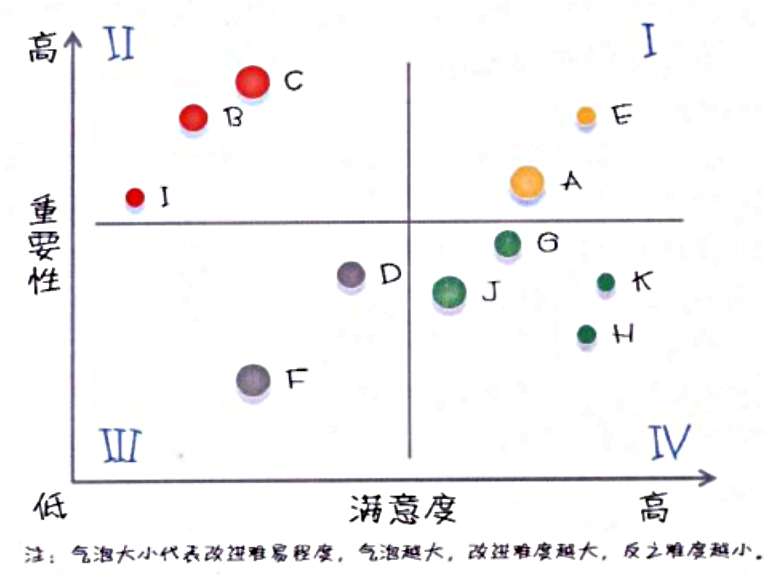 高
II
I
C
B
E
I
A
重要性
G
D
J
K
H
F
III
IV
低
满意度
高
注：气泡大小代表改进难易程度，气泡越大，改进难度越大，反之难度越小。